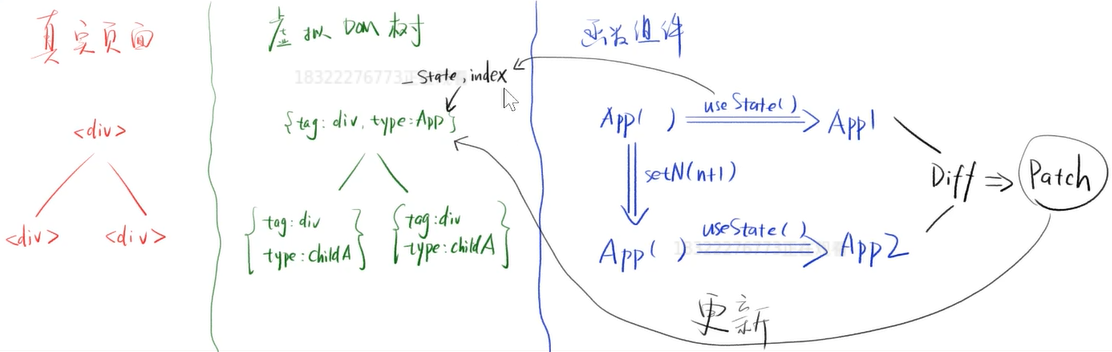 真实页面
<div>
<div>
<div>
虚拟 DOM 树
_state, index
{tag: div, type: App}
tag: div
type: childA
tag: div
type: childA
函数组件
App( )
useState()
App1
setN(n+1)
App( )
useState()
App2
Diff
Patch
更新